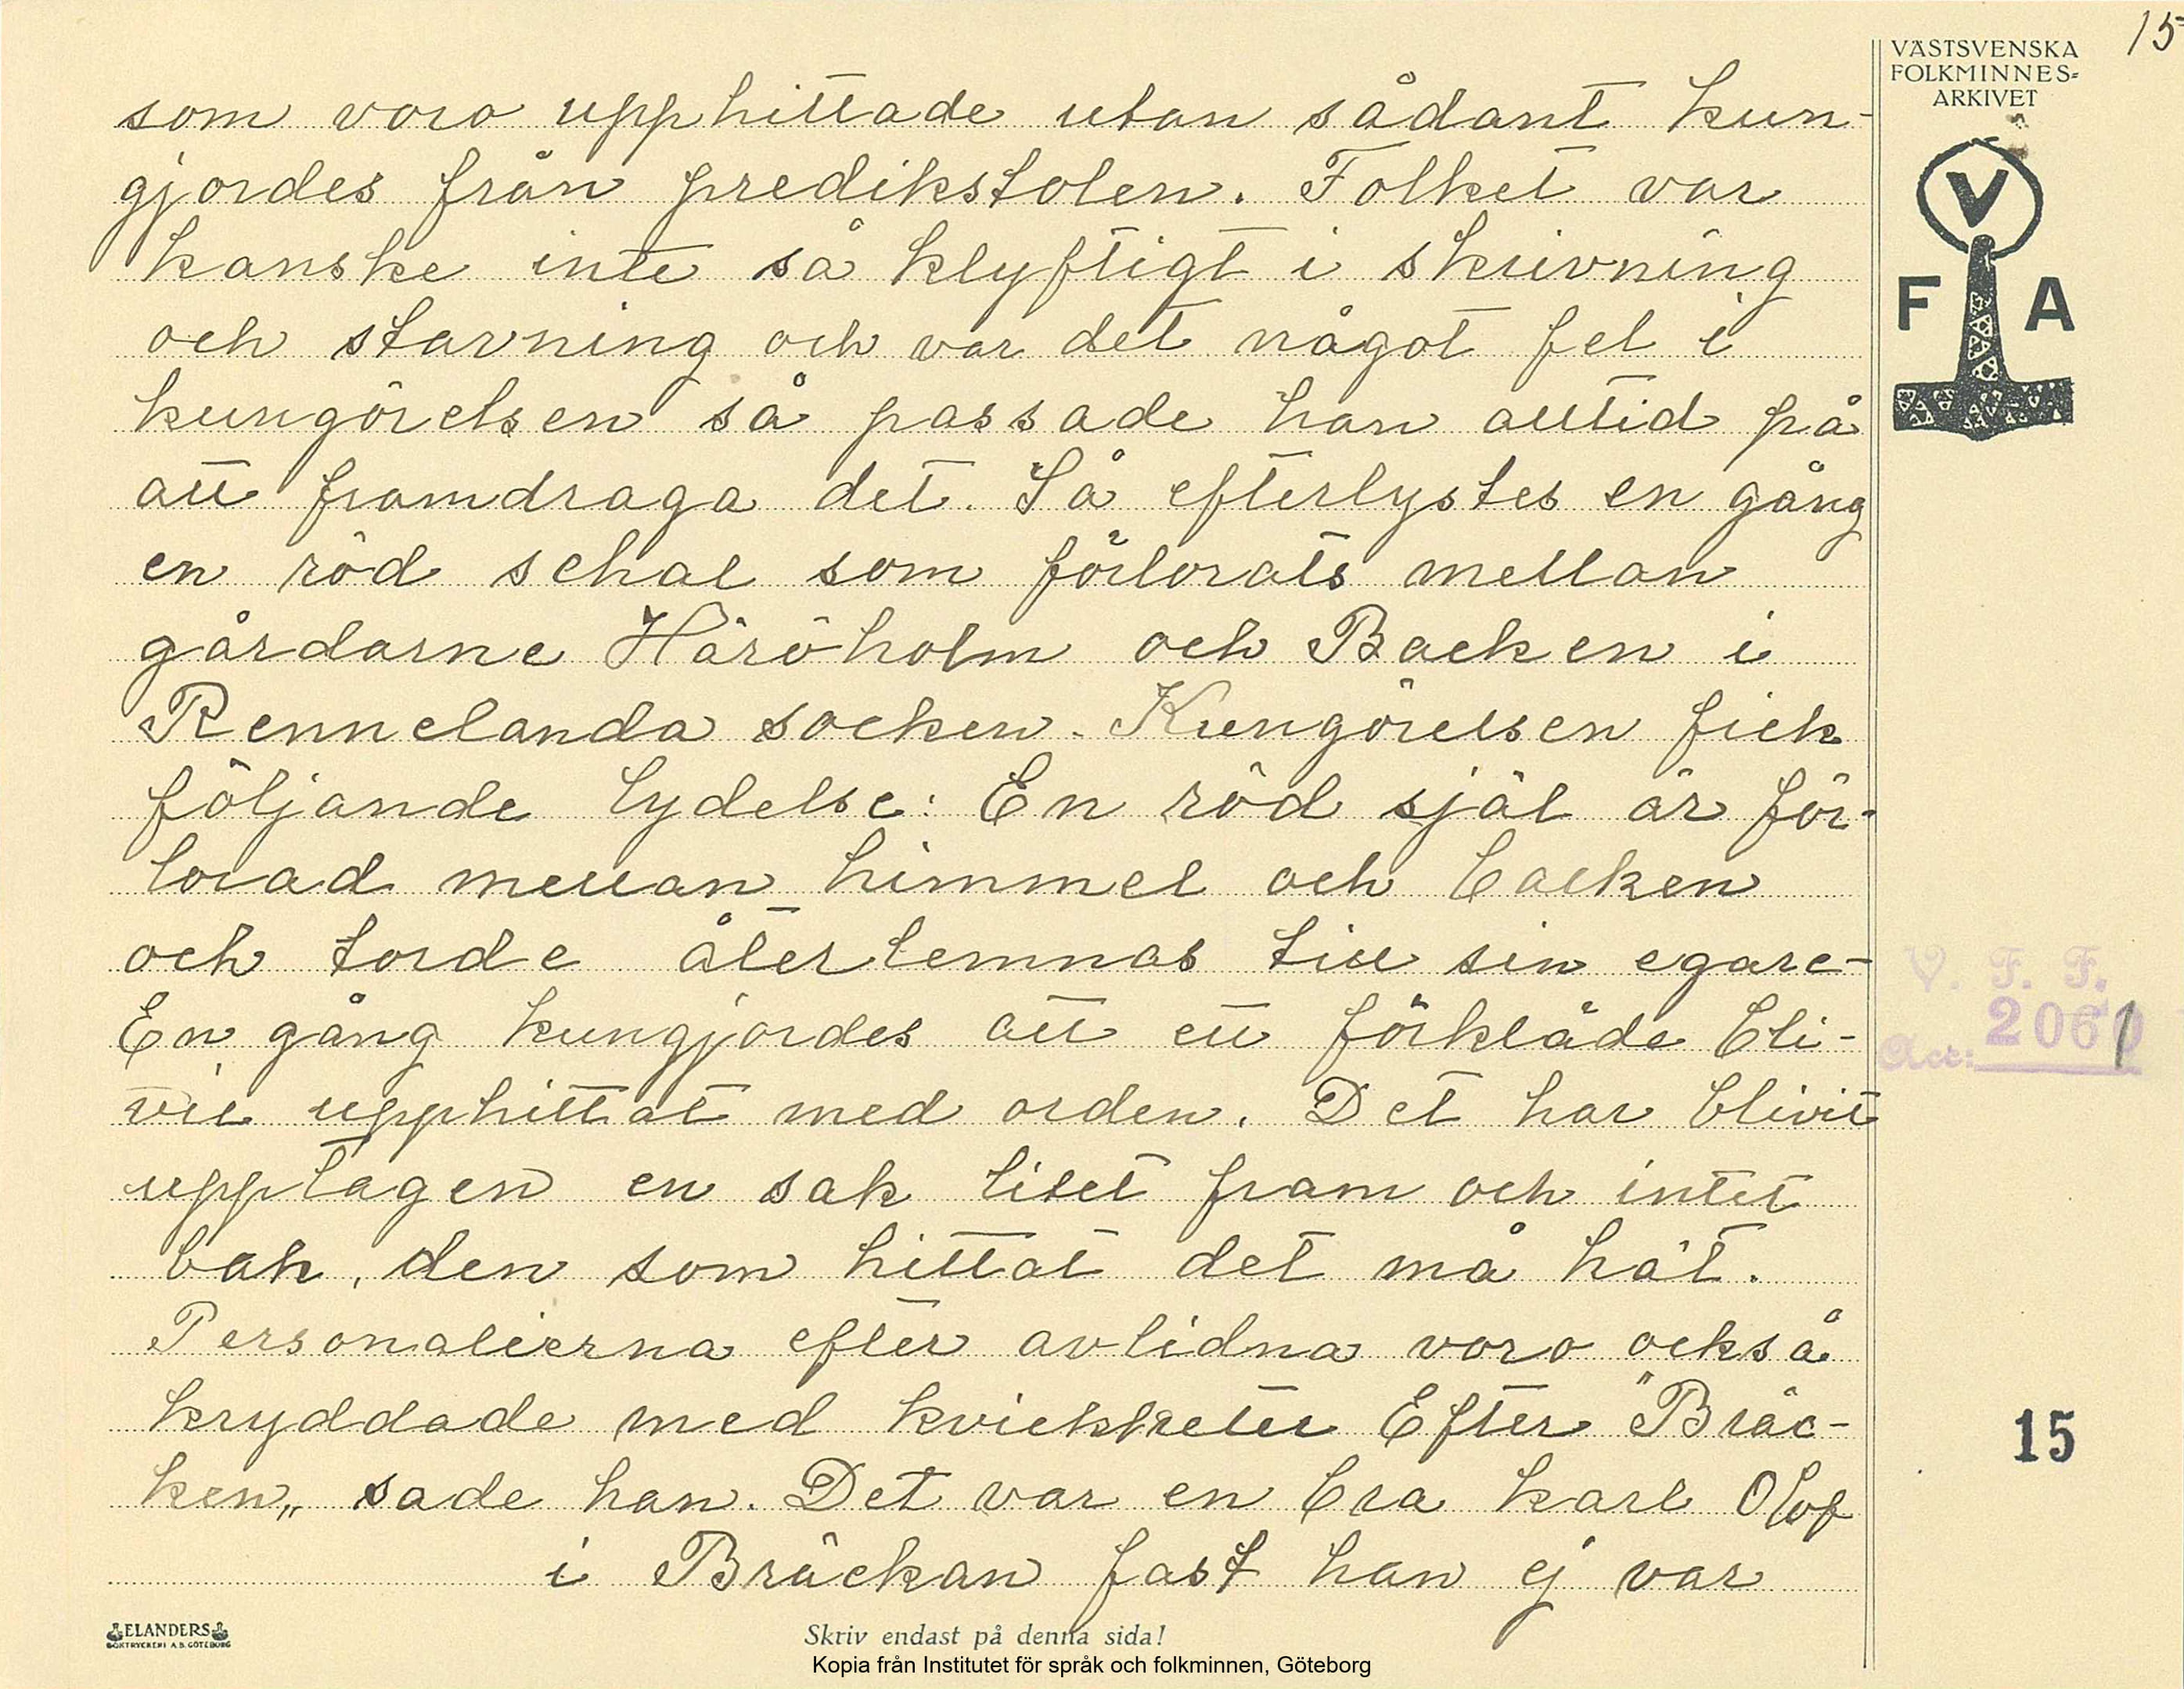 15
VÄSTSVENSKA
FOLKMINNES=
ARKIVET
V
F A
som voro upphittade utan sådant kun-
gjordes från predikstolen. Folket var
kanske inte så klyftigt i skrivning
och stavning och var det något fel i
kungörelsen så passade han alltid på
att framdraga det. Så efterlystes en gång
en röd schal som förlorats mellan
gårdarne Häröholm och Backen i
Rennelanda socken. Kungörelsen fick
följande lydelse: En röd själ är för-
lorad mellan himmel och backen
och torde återlemnas till sin egare-
En gång kungjordes att ett förkläde bli-
vit upphittat med orden. Det har blivit
upptagen en sak litet fram och intet
bak, den som hittat det må hät.
Personalierna efter avlidna voro också
kryddade med kvickheter Efter "Bräc-
ken„ sade han. Det var en bra karl Olof
i Bräckan fast han ej var
V. F. F.
Acc: 2061
15
ELANDERS
BOKTRYCKERI A.B. GÖTEBORG
Skriv endast på denna sida!
Kopia från Institutet för språk och folkminnen, Göteborg